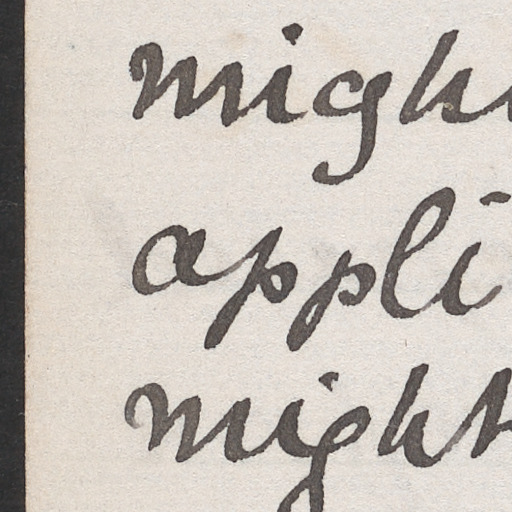 might
appli
might